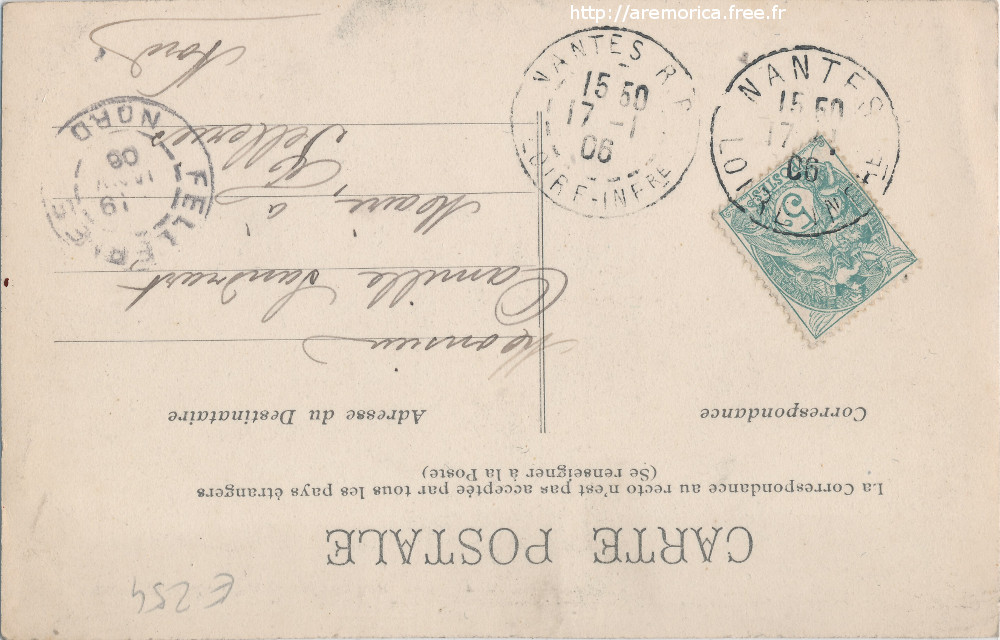 http://aremorica.free.fr
CARTE POSTALE
La Correspondance au recto n'est pas acceptée par tous les pays étrangers
(Se renseigner à la Poste)
Correspondance
Adresse du Destinataire
Monsieur
Camille Landrart
Maire, à
Felleries
Nord
NANTES R.P.
15 50
17 -1
06
LOIRE-INFRE
NANTES
15 50
17 -1
06
LOIRE-INFRE
POSTES
5
FELLERIES
19
JANV
06
NORD
E 254